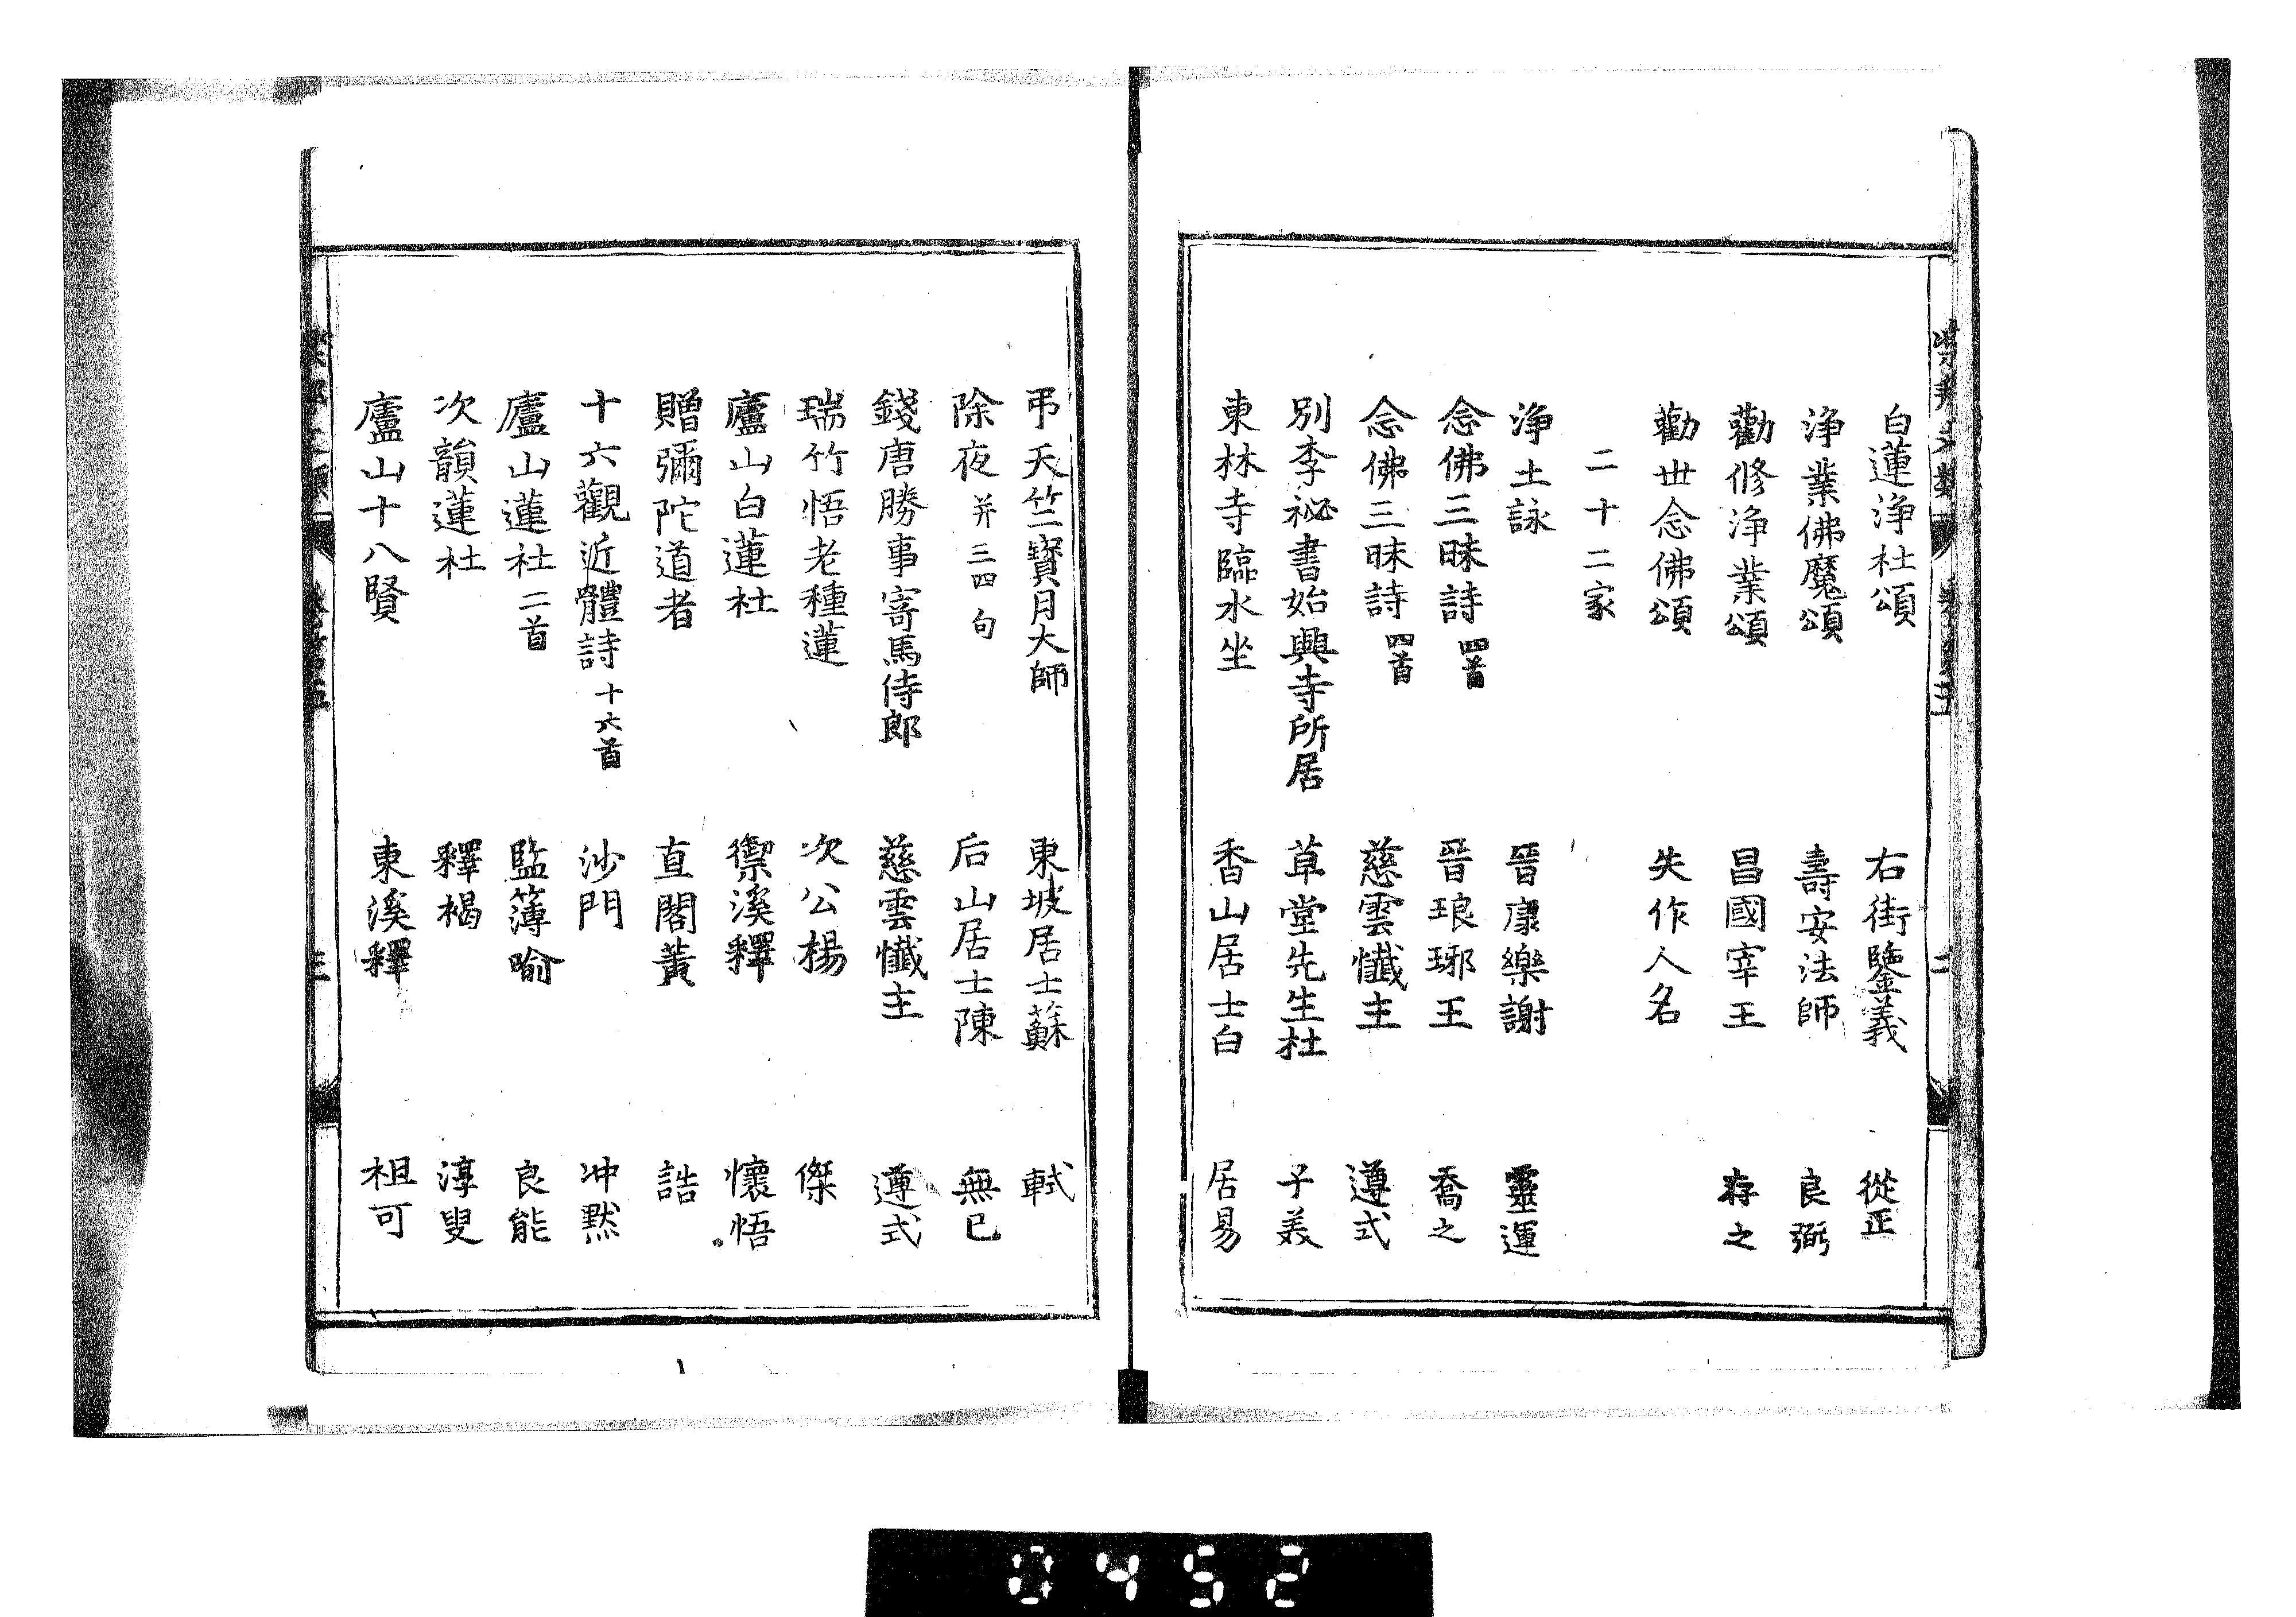 白蓮淨社頌 右街鑒義 從正
淨業佛魔頌 壽安法師 良弼
勸修淨業頌 昌國宰王 存之
勸世念佛頌 失作人名
二十二家
淨土詠 晉康樂謝 靈運
念佛三昧詩 四首 晉琅琊王 喬之
念佛三昧詩 四首 慈雲懺主 遵式
別李祕書始興寺所居 草堂先生杜 子美
東林寺臨水坐 香山居士白 居易
弔天竺寶月大師 東坡居士蘇 軾
除夜 并三四句 后山居士陳 無已
錢唐勝事寄馬侍郎 慈雲懺主 遵式
瑞竹悟老種蓮 次公楊 傑
廬山白蓮社 禦溪釋 懷悟
贈彌陀道者 直閣黃 誥
十六觀近體詩 十六首 沙門 冲黙
廬山蓮社 二首 監簿喻 良能
次韻蓮社 釋褐 淳叟
廬山十八賢 東溪釋 祖可
0452